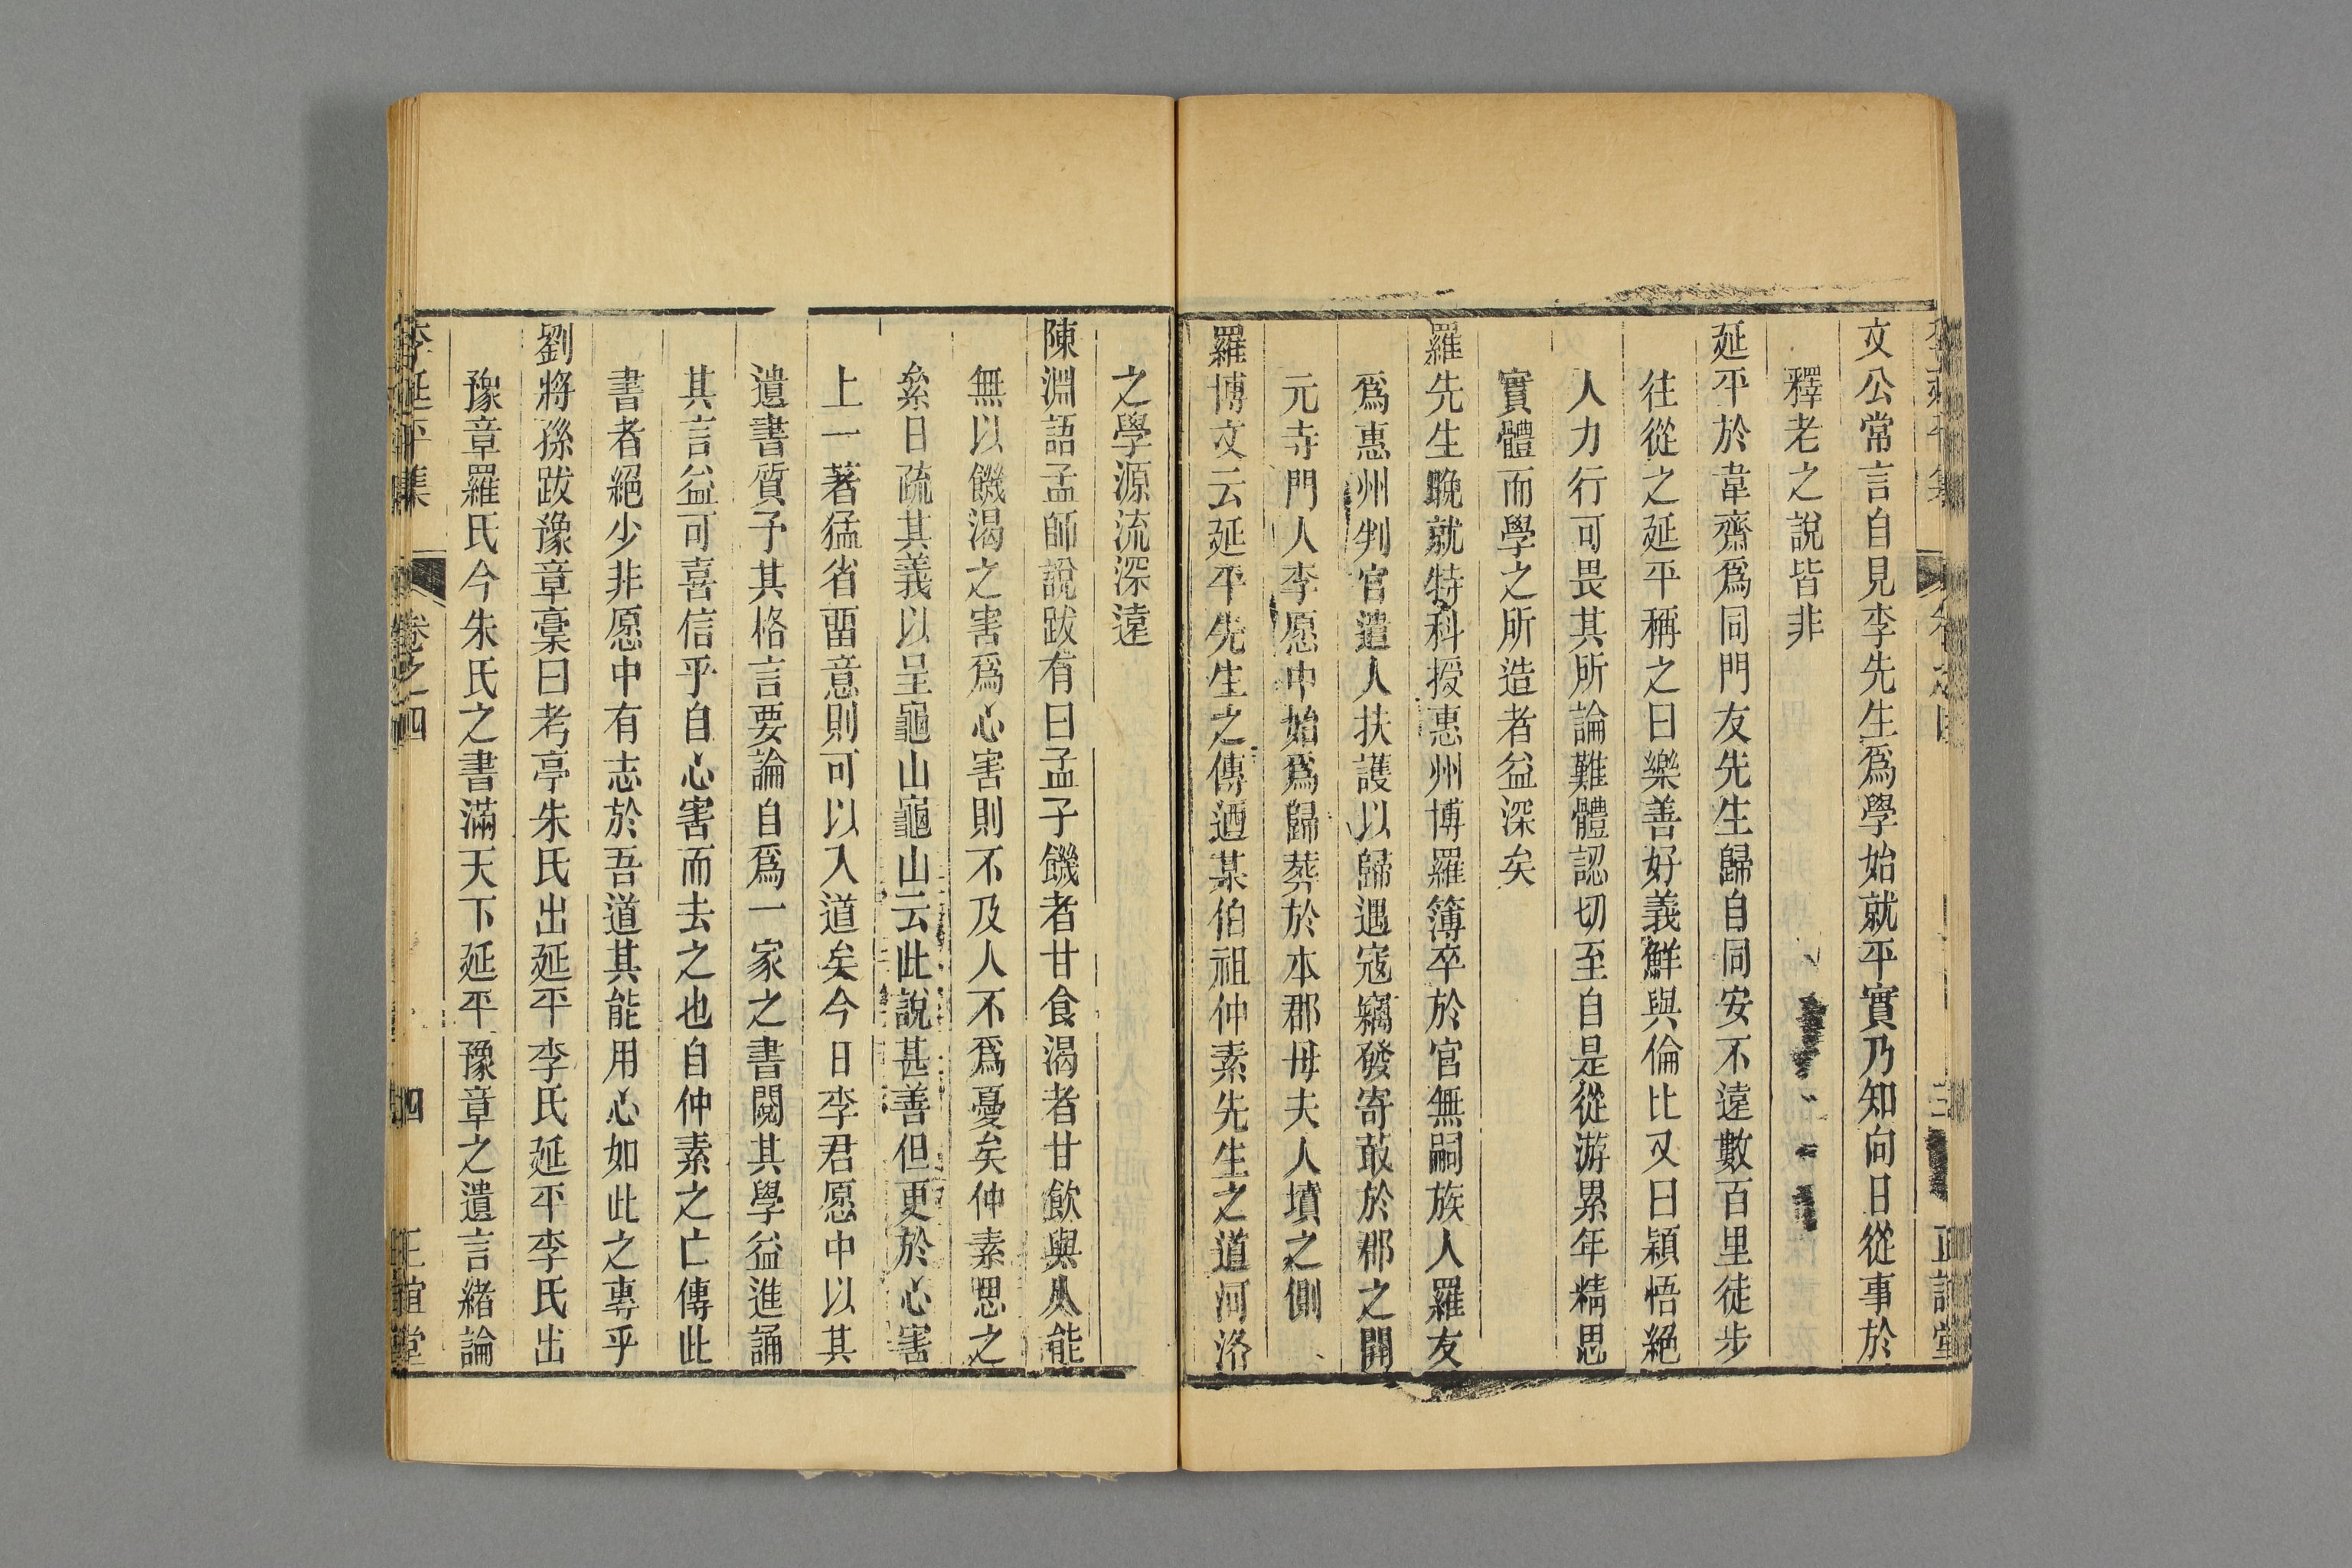 文公常言自見李先生爲學始就平實乃知向日從事於
釋老之說皆非
延平於韋齋爲同門友先生歸自同安不遠數百里徒步
往從之延平稱之曰樂善好義鮮與倫比又曰穎悟絕
人力行可畏其所論難體認切至自是從游累年精思
實體而學之所造者益深矣
羅先生晚就特科授惠州博羅簿卒於官無嗣族人羅友
爲惠州判官遣人扶護以歸遇寇竊發寄菆於郡之開
元寺門人李愿中始爲歸葬於本郡母夫人墳之側
羅博文云延平先生之傳迺某伯祖仲素先生之道河洛
之學源流深遠
陳淵語孟師說跋有曰孟子饑者甘食渴者甘飲與人能
無以饑渴之害爲心害則不及人不爲憂矣仲素思之
絫日疏其義以呈龜山龜山云此說甚善但更於心害
上一著猛省畱意則可以入道矣今日李君愿中以其
遺書質予其格言要論自爲一家之書閱其學益進誦
其言益可喜信乎自心害而去之也自仲素之亡傳此
書者絕少非愿中有志於吾道其能用心如此之專乎
劉將孫跋豫章稾曰考亭朱氏出延平李氏延平李氏出
豫章羅氏今朱氏之書滿天下延平豫章之遺言緒論
李延平集 卷之四 四 正誼堂